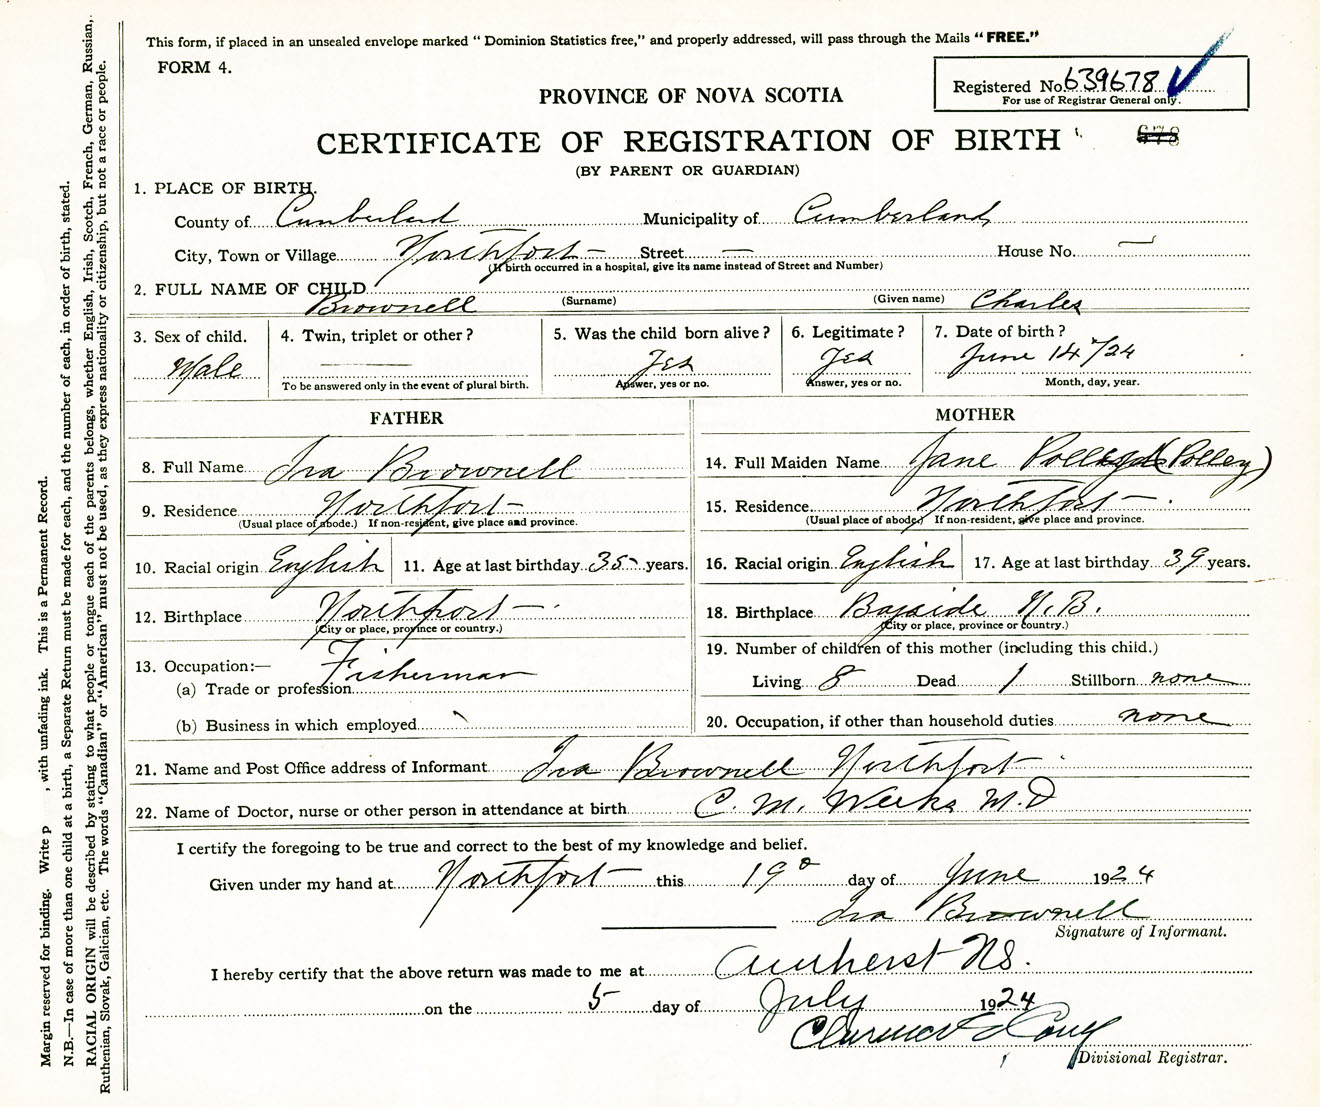 This form, if placed in an unsealed envelope marked “ Dominion Statistics free,” and properly addressed, will pass through the Mails “ FREE.”
FORM 4.
Registered No. 639678
For use of Registrar General only.
PROVINCE OF NOVA SCOTIA
CERTIFICATE OF REGISTRATION OF BIRTH
678
(BY PARENT OR GUARDIAN)
1. PLACE OF BIRTH.
County of Cumberland Municipality of Cumberland
City, Town or Village Northport — Street — House No. —
(If birth occurred in a hospital, give its name instead of Street and Number)
2. FULL NAME OF CHILD
Brownell (Surname) (Given name) Charles
3. Sex of child. 4. Twin, triplet or other? 5. Was the child born alive? 6. Legitimate? 7. Date of birth?
Male — Yes Yes June 14/24
To be answered only in the event of plural birth. Answer, yes or no. Answer, yes or no. Month, day, year.
FATHER
8. Full Name Ira Brownell
9. Residence Northport —
(Usual place of abode.) If non-resident, give place and province.
10. Racial origin English 11. Age at last birthday 35 years.
12. Birthplace Northport —
(City or place, province or country.)
13. Occupation:— Fisherman
(a) Trade or profession
(b) Business in which employed
MOTHER
14. Full Maiden Name Jane (Polley)
15. Residence Northport —
(Usual place of abode.) If non-resident, give place and province.
16. Racial origin English 17. Age at last birthday 39 years.
18. Birthplace Bayside N.B.
(City or place, province or country.)
19. Number of children of this mother (including this child.)
Living 8 Dead 1 Stillborn none
20. Occupation, if other than household duties none
21. Name and Post Office address of Informant Ira Brownell Northport
22. Name of Doctor, nurse or other person in attendance at birth C. M. Weeks M.D
I certify the foregoing to be true and correct to the best of my knowledge and belief.
Given under my hand at Northport — this 19 day of June 1924
Ira Brownell
Signature of Informant.
I hereby certify that the above return was made to me at Amherst NS.
on the 5 day of July 1924
Clarence
Divisional Registrar.
Margin reserved for binding. Write p , with unfading ink. This is a Permanent Record.
N.B.—In case of more than one child at a birth, a Separate Return must be made for each, and the number of each, in order of birth, stated.
RACIAL ORIGIN will be described by stating to what people or tongue each of the parents belongs, whether English, Irish, Scotch, French, German, Russian,
Ruthenian, Slovak, Galician, etc. The words “Canadian” or “American” must not be used, as they express nationality or citizenship, but not a race or people.